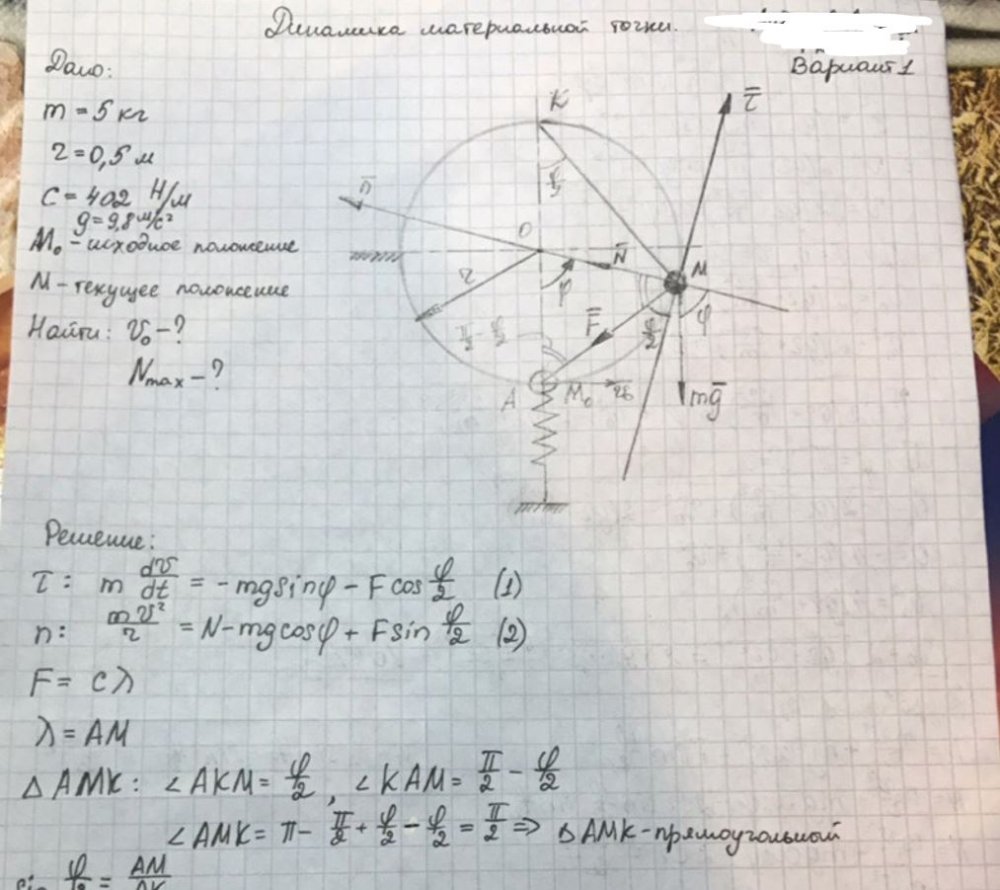 Динамика материальной точки.
Вариант 1
Дано:
m = 5 кг
r = 0,5 м
C = 402 Н/м
g = 9,8 м/с²
M₀ - исходное положение
M - текущее положение
Найти: v₀ - ?
Nmax - ?
K
τ̄
φ/2
n̄
O
N̄
M
r
φ
φ
F̄
φ/2
π/2 - φ/2
A
M₀
v̄₀
mḡ
Решение:
τ: m dv/dt = -mg sinφ - F cos φ/2 (1)
n: mv²/r = N - mg cosφ + F sin φ/2 (2)
F = cλ
λ = AM
Δ AMK: ∠AKM = φ/2, ∠KAM = π/2 - φ/2
∠AMK = π - π/2 + φ/2 - φ/2 = π/2 => Δ AMK - прямоугольный
sin φ/2 = AM/AK